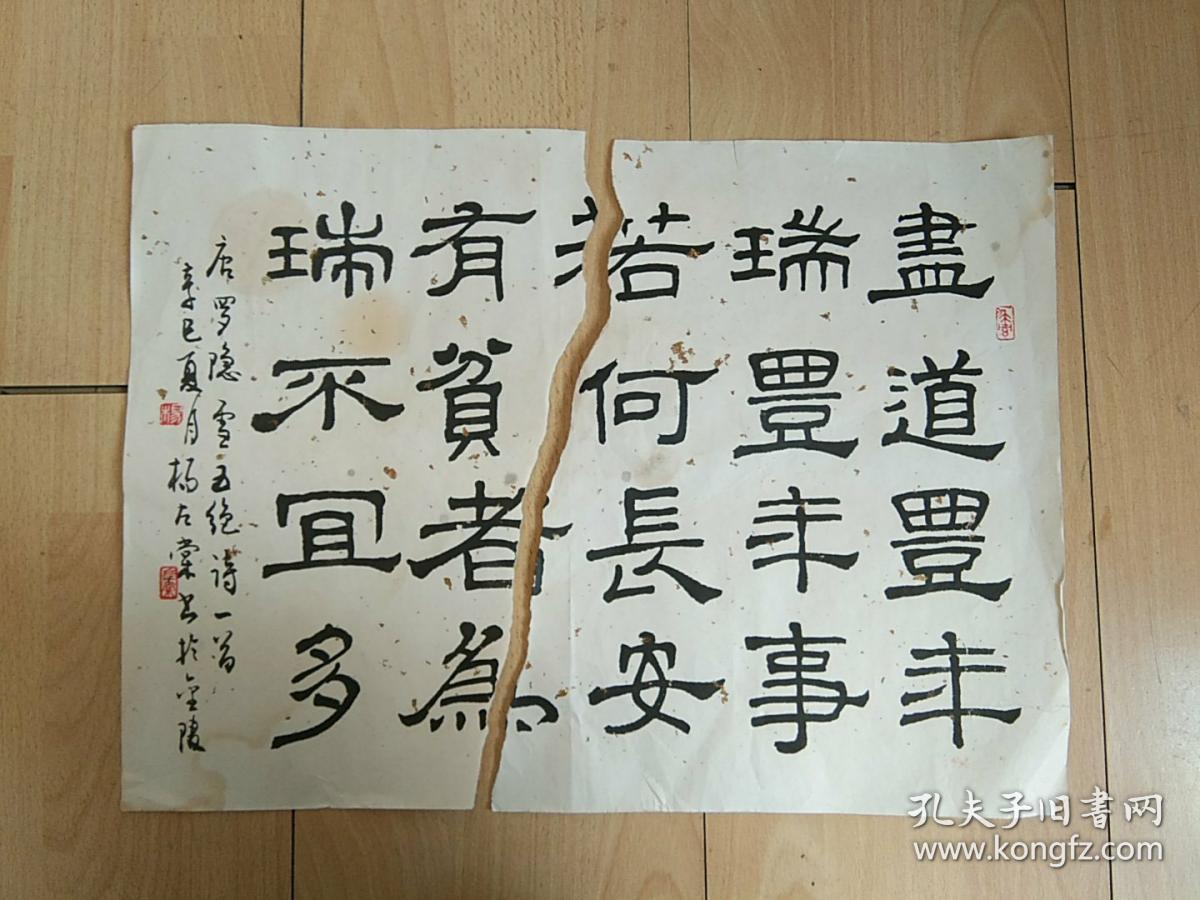 盡道豊年
瑞豊年事
若何長安
有貧者為
瑞不宜多
唐罗隐雪五绝诗一首
辛巳夏月楊古棠书於金陵
孔夫子旧书网
www.kongfz.com